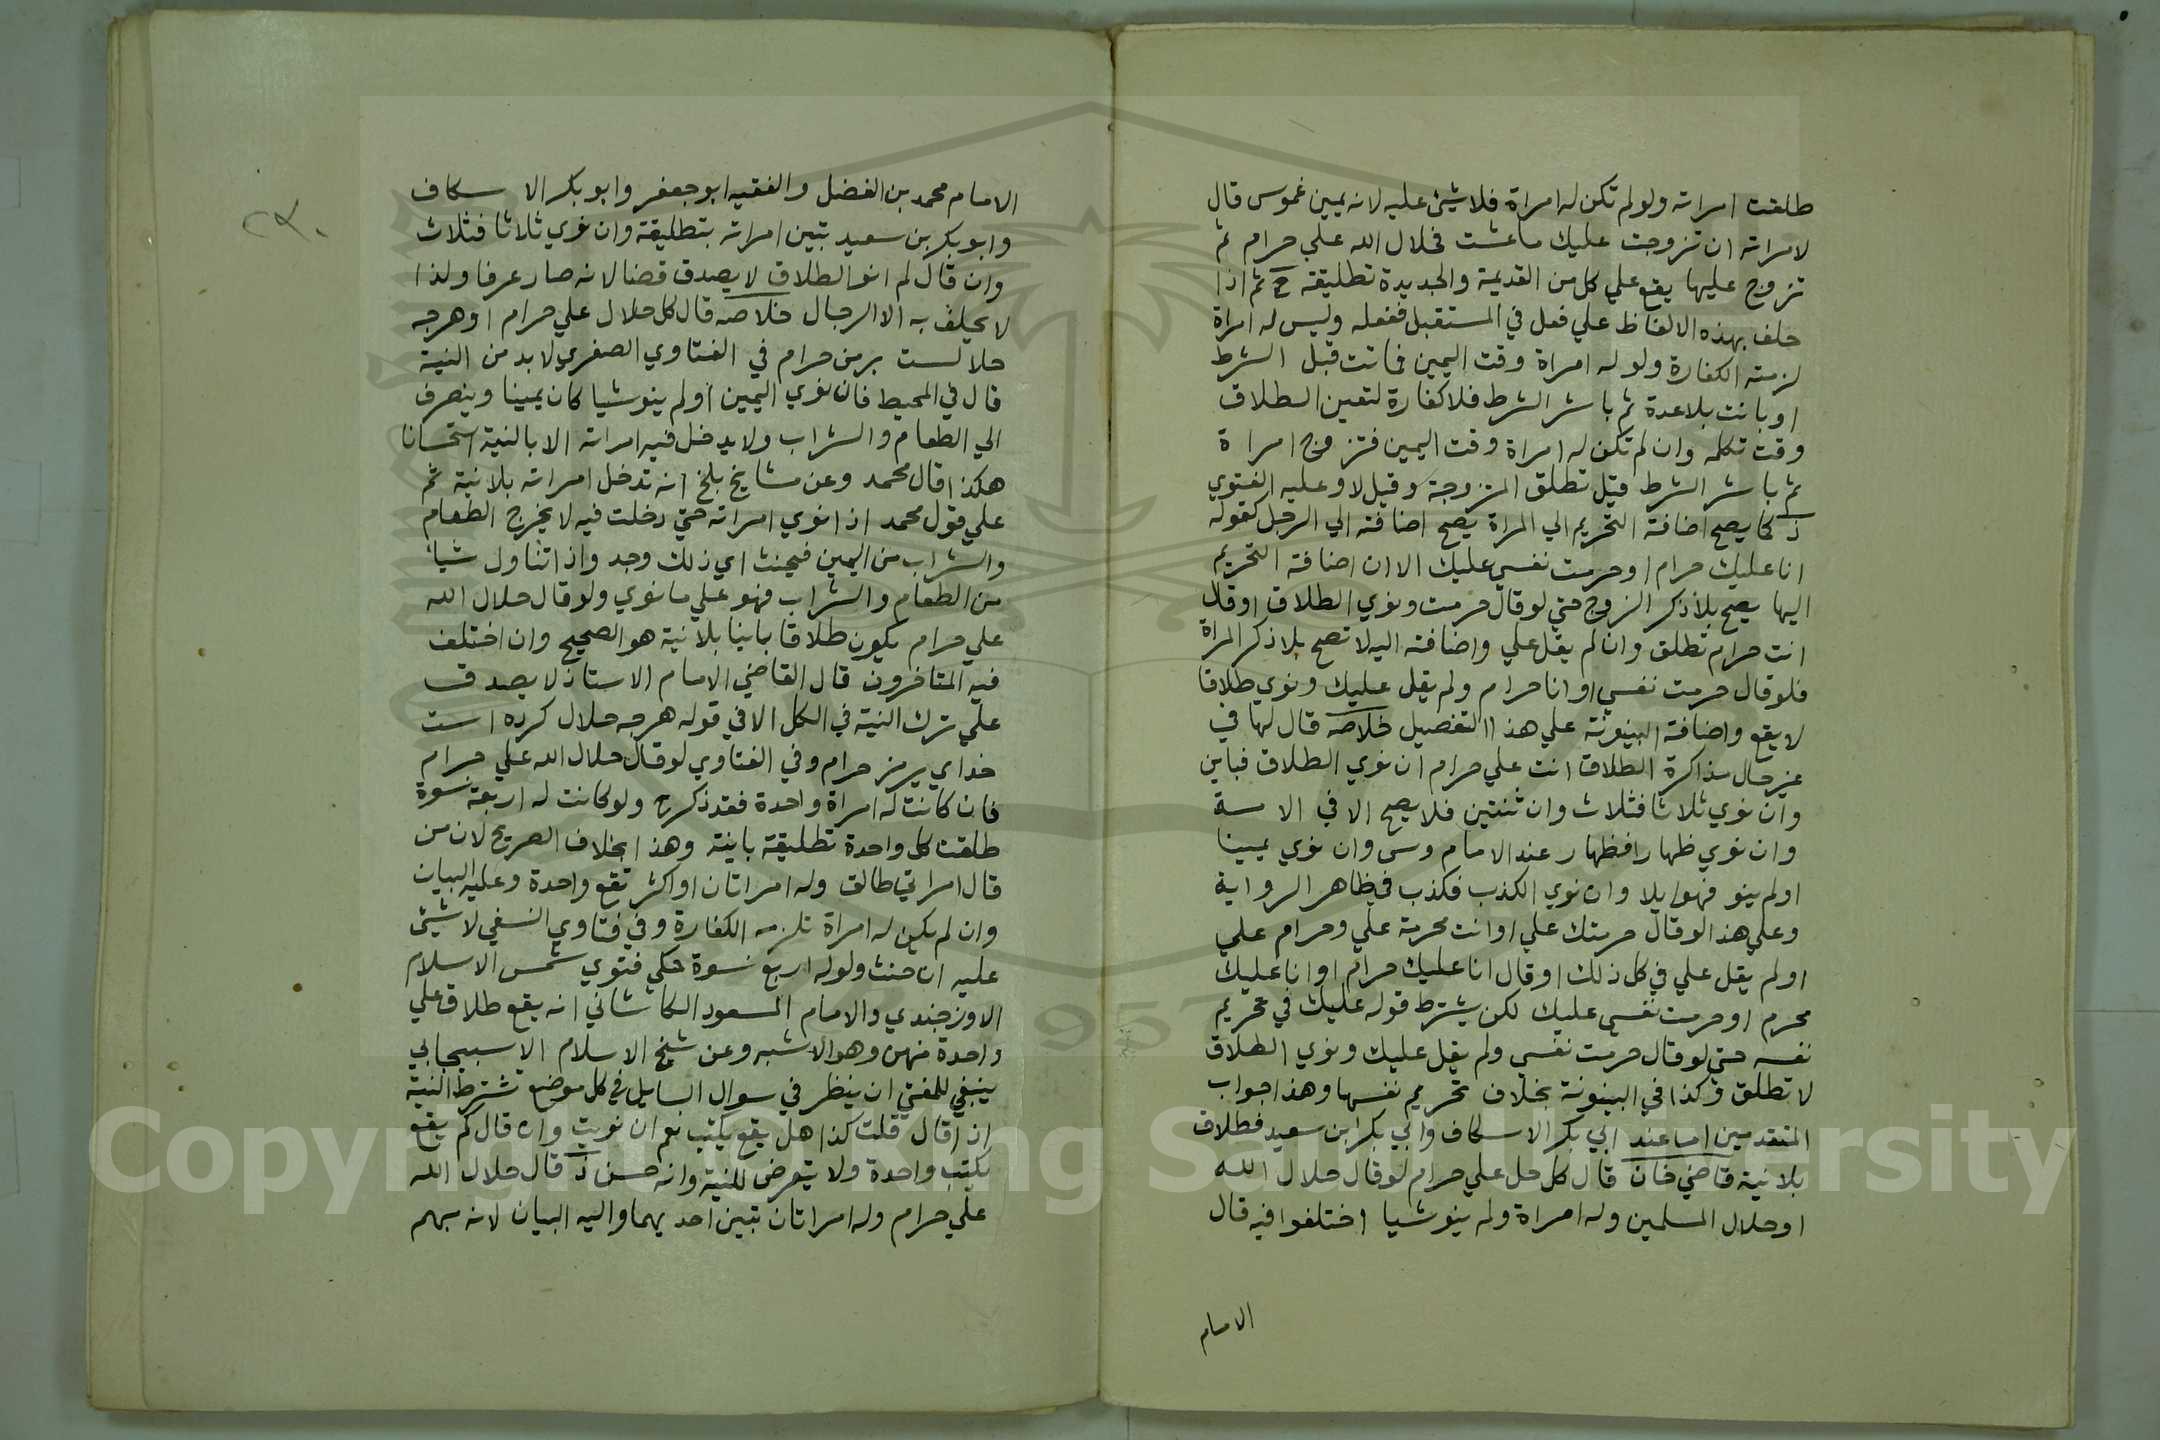 طلقت امراته ولو لم تكن له امراة فلا شئ عليه لانه يمين غموس قال
لامراته ان تزوجت عليك ما عشت فحلال الله علي حرام ثم
تزوج عليها يقع علي كل من القديمة والجديدة تطليقة ح ثم اذا
حلف بهذه الالفاظ علي فعل في المستقبل ففعله وليس له امراة
لزمته الكفارة ولو له امراة وقت اليمين فماتت قبل الشرط
او بانت بلا عدة ثم باشر الشرط فلا كفارة لتعين الطلاق
وقت تكلمه وان لم تكن له امراة وقت اليمين فتزوج امراة
ثم باشر الشرط قيل تطلق المتزوجة وقيل لا وعليه الفتوي
ذ كما يصح اضافة التحريم الي المراة يصح اضافته الي الرجل كقوله
انا عليك حرام او حرمت نفسي عليك الا ان اضافة التحريم
اليها يصح بلا ذكر الزوج حتي لو قال حرمت ونوي الطلاق او قال
انت حرام تطلق وان لم يقل علي واضافته اليه لا تصح بلا ذكر المراة
فلو قال حرمت نفسي او انا حرام ولم يقل عليك ونوي طلاقا
لا يقع واضافة البينونة علي هذا التفصيل خلاصه قال لها في
غير حال مذاكرة الطلاق انت علي حرام ان نوي الطلاق فباين
وان نوي ثلاثا فثلاث وان ثنتين فلا يصح الا في الامة
وان نوي ظهارا فظهار عند الامام وس وان نوي يمينا
او لم ينو فهو ايلا وان نوي الكذب فكذب في ظاهر الرواية
وعلي هذا لو قال حرمتك علي او انت محرمة علي وحرام علي
او لم يقل علي في كل ذلك او قال انا عليك حرام او انا عليك
محرم او حرمت نفسي عليك لكن يشترط قوله عليك في تحريم
نفسه حتي لو قال حرمت نفسي ولم يقل عليك ونوي الطلاق
لا تطلق وكذا في البينونة بخلاف تحريم نفسها وهذا جواب
المتقدمين اما عند ابي بكر الاسكاف وابي بكر ابن سعيد فطلاق
بلا نية قاضي خان قال كل حل علي حرام لو قال حلال الله
او حلال المسلمين وله امراة ولم ينو شيا اختلفوا فيه قال
الامام
٢٩٠
الامام محمد بن الفضل والفقيه ابو جعفر وابو بكر الاسكاف
وابو بكر بن سعيد تبين امراته بتطليقة وان نوي ثلاثا فثلاث
وان قال لم انو الطلاق لا يصدق قضا لانه صار عرفا ولذا
لا يحلف به الا الرجال خلاصه قال كل حلال علي حرام او هرجه
حلالست بر من حرام في الفتاوي الصغري لا بد من النية
قال في المحيط فان نوي اليمين او لم ينو شيا كان يمينا وينصرف
الي الطعام والشراب ولا يدخل فيه امراته الا بالنية استحسانا
هكذا قال محمد وعن مشايخ بلخ انه تدخل امراته بلا نية ثم
علي قول محمد اذا نوي امراته حتي دخلت فيه لا يخرج الطعام
والشراب من اليمين فيحنث اي ذلك وجد واذا تناول شيا
من الطعام والشراب فهو علي ما نوي ولو قال حلال الله
علي حرام يكون طلاقا باينا بلا نية هو الصحيح وان اختلف
فيه المتاخرون قال القاضي الامام الاستاذ لا يصدق
علي ترك النية في الكل الا في قوله هرجه حلال كرده است
خداي بر من حرام وفي الفتاوي لو قال حلال الله علي حرام
فان كانت له امراة واحدة فقد ذكره ولو كانت له اربعة نسوة
طلقت كل واحدة تطليقة باينة وهذا بخلاف الصريح لان من
قال امراتي طالق وله امراتان او اكثر تقع واحدة وعليه البيان
وان لم يكن له امراة تلزمه الكفارة وفي فتاوي النسفي لا شئ
عليه ان حنث ولو له اربع نسوة حكي فتوي شمس الاسلام
الاوزجندي والامام المسعود الكاشاني انه يقع طلاق علي
واحدة منهن وهو الاشبه وعن شيخ الاسلام الاسبيجابي
ينبغي للمفتي ان ينظر في سوال السايل في كل موضع تشترط النية
اذا قال قلت كذا هل يقع يكتب نعم ان نويت وان قال كم يقع
يكتب واحدة ولا يتعرض للنية وانه حسن ذ قال حلال الله
علي حرام وله امراتان تبين احديهما واليه البيان لانه مبهم
Copyright © King Saud University
1957